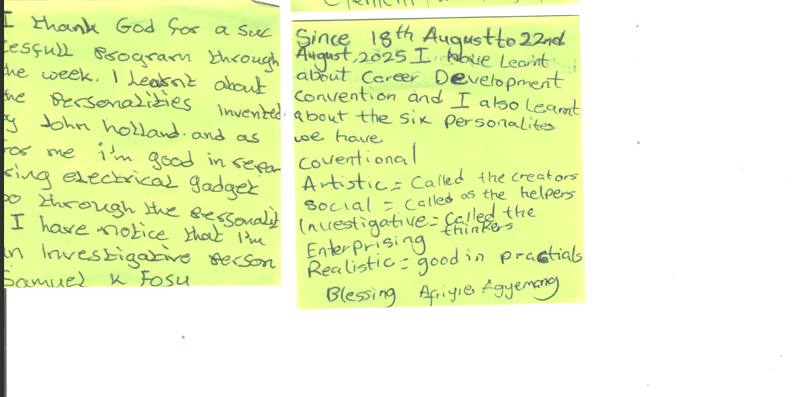 I thank God for a suc
cesfull program through
the week. I Learnt about
the Personalities invented
by John holland. and as
for me i'm good in repar
ring electrical gadget
so through the Personalit
I have notice that I'm
an Investigative Person
Samuel K Fosu
Since 18th August to 22nd
August, 2025 I have Learnt
about Career Development
Convention and I also Learnt
about the six personalites
we have
Coventional
Artistic = Called the creators
Social = Called as the helpers
Investigative = Called the
thinkers
Enterprising
Realistic = good in practials
Blessing Afriyie Agyemang